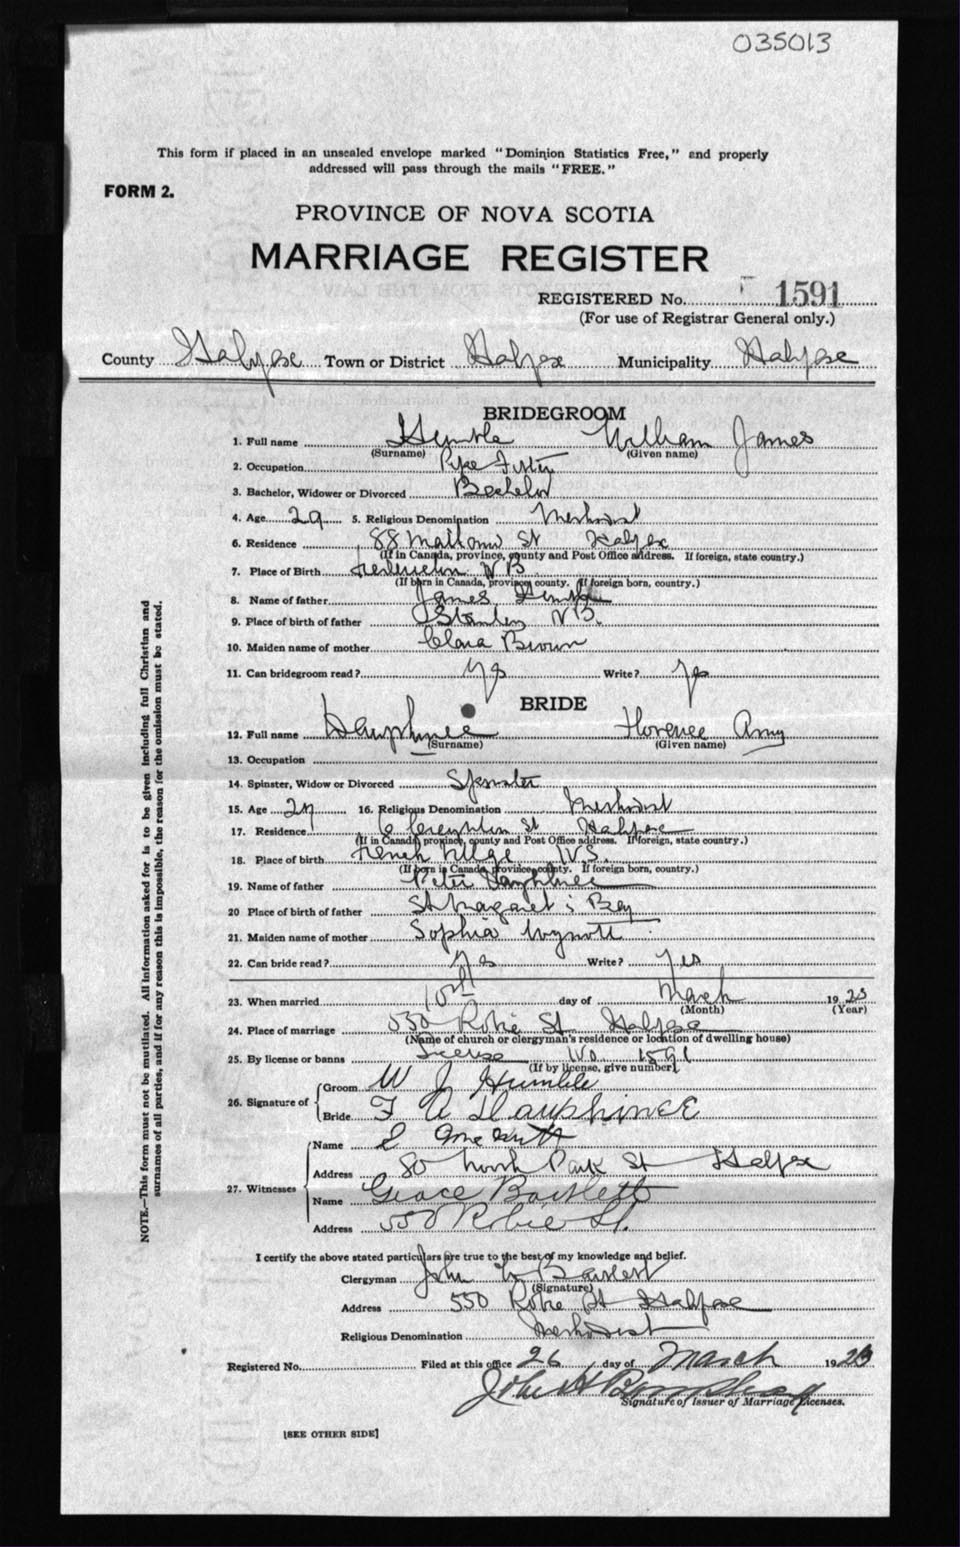 035013
This form if placed in an unsealed envelope marked "Dominion Statistics Free," and properly
addressed will pass through the mails "FREE."
FORM 2.
PROVINCE OF NOVA SCOTIA
MARRIAGE REGISTER
REGISTERED No. 1591
(For use of Registrar General only.)
County Halifax Town or District Halifax Municipality Halifax
BRIDEGROOM
1. Full name Humble William James
(Surname) (Given name)
2. Occupation Pipe Fitter
3. Bachelor, Widower or Divorced Bachelor
4. Age 29 5. Religious Denomination Methodist
6. Residence 88 St Halifax
(If in Canada, province, county and Post Office address. If foreign, state country.)
7. Place of Birth Fredericton N B
(If born in Canada, province county. If foreign born, country.)
8. Name of father James Humble
9. Place of birth of father Stanley N B.
10. Maiden name of mother Clara Brown
11. Can bridegroom read? Yes Write? Yes
BRIDE
12. Full name Dauphinee Florence Amy
(Surname) (Given name)
13. Occupation
14. Spinster, Widow or Divorced Spinster
15. Age 27 16. Religious Denomination Methodist
17. Residence 6 Creighton St Halifax
(If in Canada, province, county and Post Office address. If foreign, state country.)
18. Place of birth French Village N.S.
(If born in Canada, province, county. If foreign born, country.)
19. Name of father Peter Dauphinee
20 Place of birth of father St Margaret's Bay
21. Maiden name of mother Sophia Wynott
22. Can bride read? Yes Write? Yes
23. When married 10th day of March 1923
(Month) (Year)
24. Place of marriage 550 Robie St Halifax
(Name of church or clergyman's residence or location of dwelling house)
25. By license or banns License No. 1591
(If by license, give number)
26. Signature of Groom W J Humble
Bride F A Dauphinee
27. Witnesses Name
Address 80 North Park St Halifax
Name Grace Bartlett
Address 550 Robie St.
I certify the above stated particulars are true to the best of my knowledge and belief.
Clergyman John Bartlett
(Signature)
Address 550 Robie St Halifax
Religious Denomination Methodist
Registered No. Filed at this office 26 day of March 1923
John
Signature of Issuer of Marriage Licenses.
[SEE OTHER SIDE]
NOTE.—This form must not be mutilated. All information asked for is to be given including full Christian and
surnames of all parties, and if for any reason this is impossible, the reason for the omission must be stated.